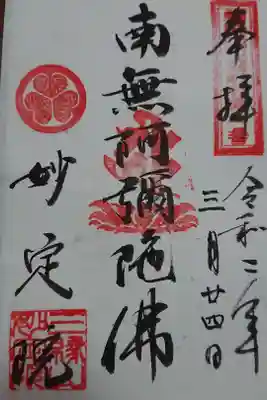 奉拝
令和二年
三月廿四日
南無阿彌陀佛
妙定院